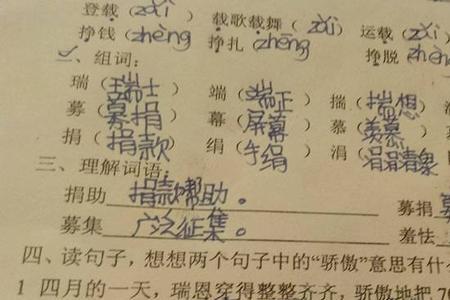 登载（zǎi） 载歌载舞（zài） 运载（zài
挣钱（zhèng） 挣扎（zhēng） 挣脱（zhèn
二、组词：
瑞（瑞士） 端（端正） 揣（揣想）
募（募捐） 幕（屏幕） 慕（羡慕）
捐（捐款） 绢（手绢） 涓（涓涓
三、理解词语：
捐助 捐款帮助。 募捐
募集 广泛征集。 羞怯
四、读句子，想想两个句子中的“骄傲”意思有什
1 四月的一天，瑞恩穿得整整齐齐，骄傲地把7